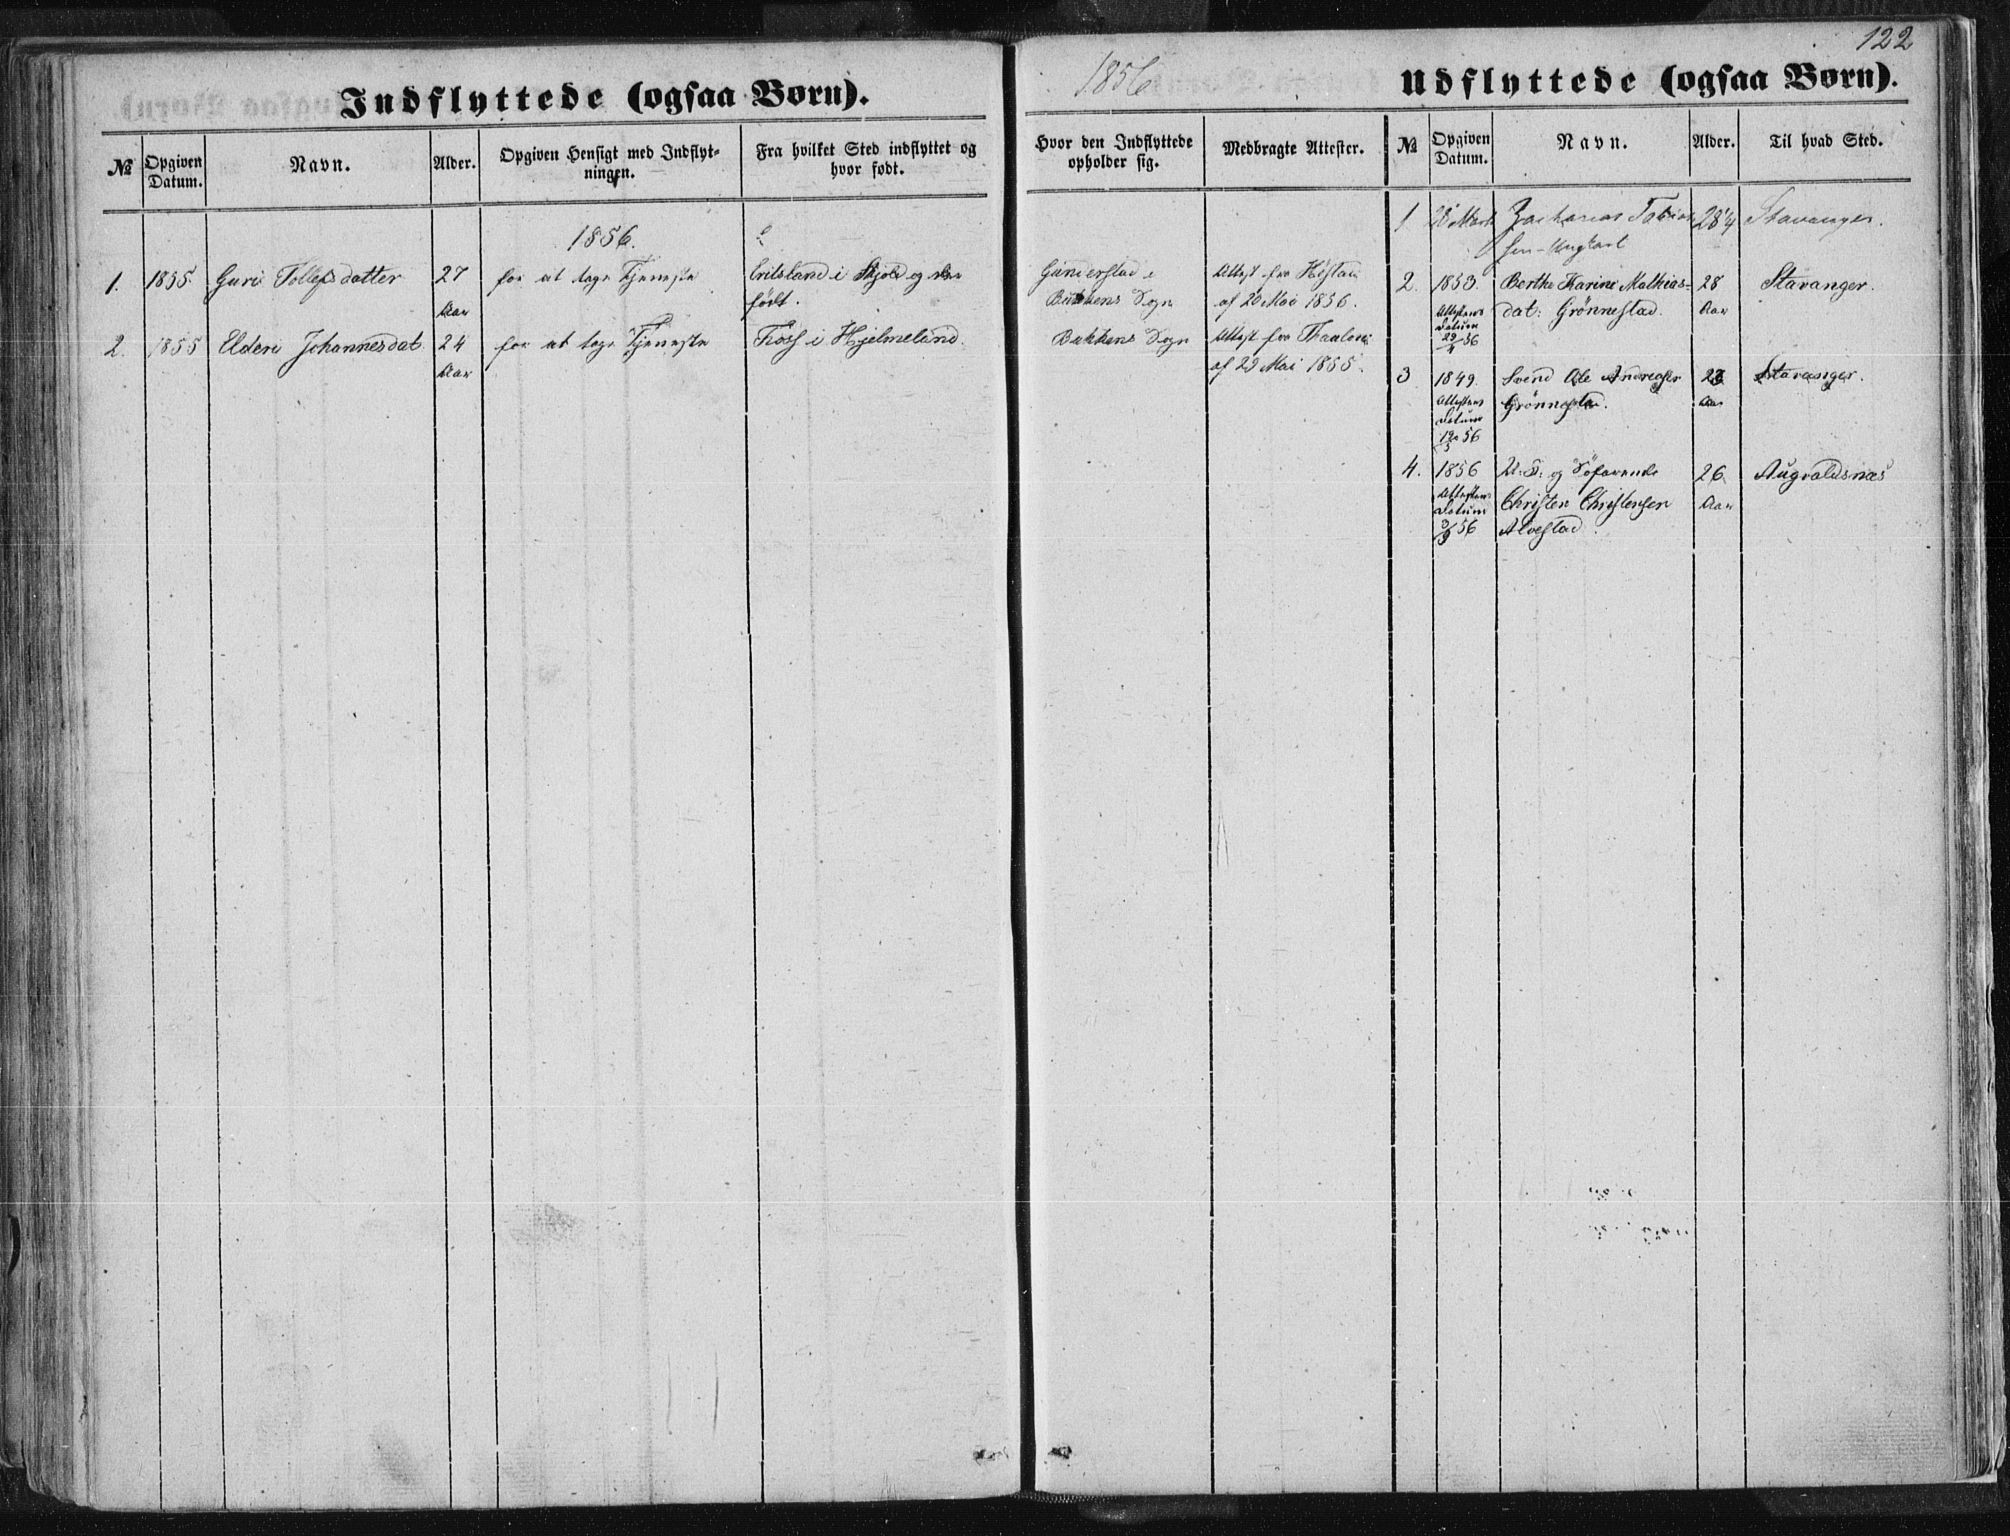 122
1856
Indflyttede (ogsaa Børn).
№ Opgiven Datum. Navn. Alder. Opgiven Hensigt med Indflyt-ningen. Fra hvilket Sted indflyttet og hvor født.
1856.
1. 1855. Guri Tollefsdatter 27 for at tage Tjeneste i Skjold og der
Aar født.
2. 1855 Johannesdat. 24 for at tage Tjeneste Foss i Hjelmeland.
Aar
Udflyttede (ogsaa Børn).
Hvor den Indflyttede opholder sig. Medbragte Attester. № Opgiven Datum. Navn. Alder. Til hvad Sted.
Gunderstad i Attest fra
Bukkens Sogn af 20 Mai 1856.
Bukkens Sogn Attest fra
af 22 Mai 1855.
1 Zacharias Tobias 28 Stavanger.
sen - Ungkarl
2. 1853. Berthe Karine Mathias- 28 Stavanger.
Attestens dat: Grønnestad. Aar
Datum
29/4 56
3 1849. Svend Ole Andreas Stavanger.
Attestens Grønnestad. Aar
Datum
56
4. 1856 U. K. og Søfarende 26 Augvaldsnæs
Attestens Christen Christensen Aar
Datum Alvestad.
56